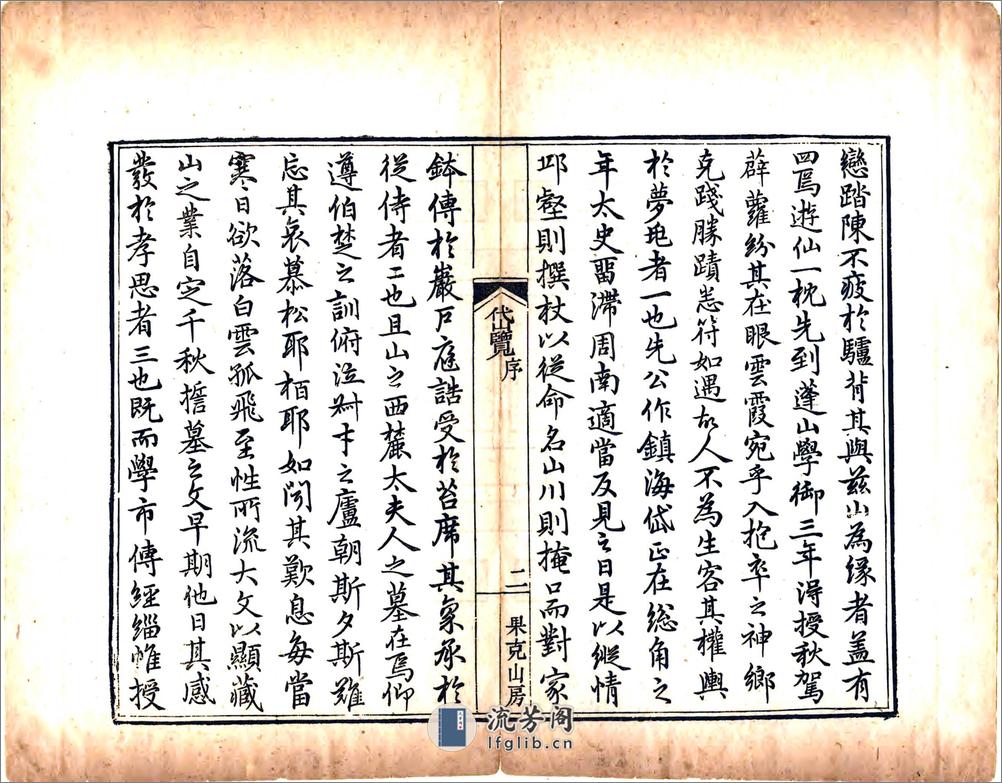 戀踏陳不疲於驢背其與茲山為緣者蓋有
四焉遊仙一枕先到蓬山學御三年淂授秋駕
薜蘿紛其在眼雲霞宛乎入抱卒之神鄉
克踐勝蹟悉符如遇故人不為生客其權輿
於夢兆者一也先公作鎮海岱正在總角之
年太史畱滯周南適當反見之日是以縱情
邱壑則撰杖以從命名山川則掩口而對家
岱覽
序
二
果克山房
鉢傳於巖戸庭誥受於苔席其氣承於
從侍者二也且山之西麓太夫人之墓在焉仰
遵伯埜之訓俯泣之廬朝斯夕斯難
忘其哀慕松耶栢耶如聞其歎息每當
寒日欲落白雲孤飛至性所流大文以顯藏
山之業自定千秋誓墓之文早期他日其感
發於孝思者三也既而學市傳經緇帷授
流芳阁
lfglib.cn